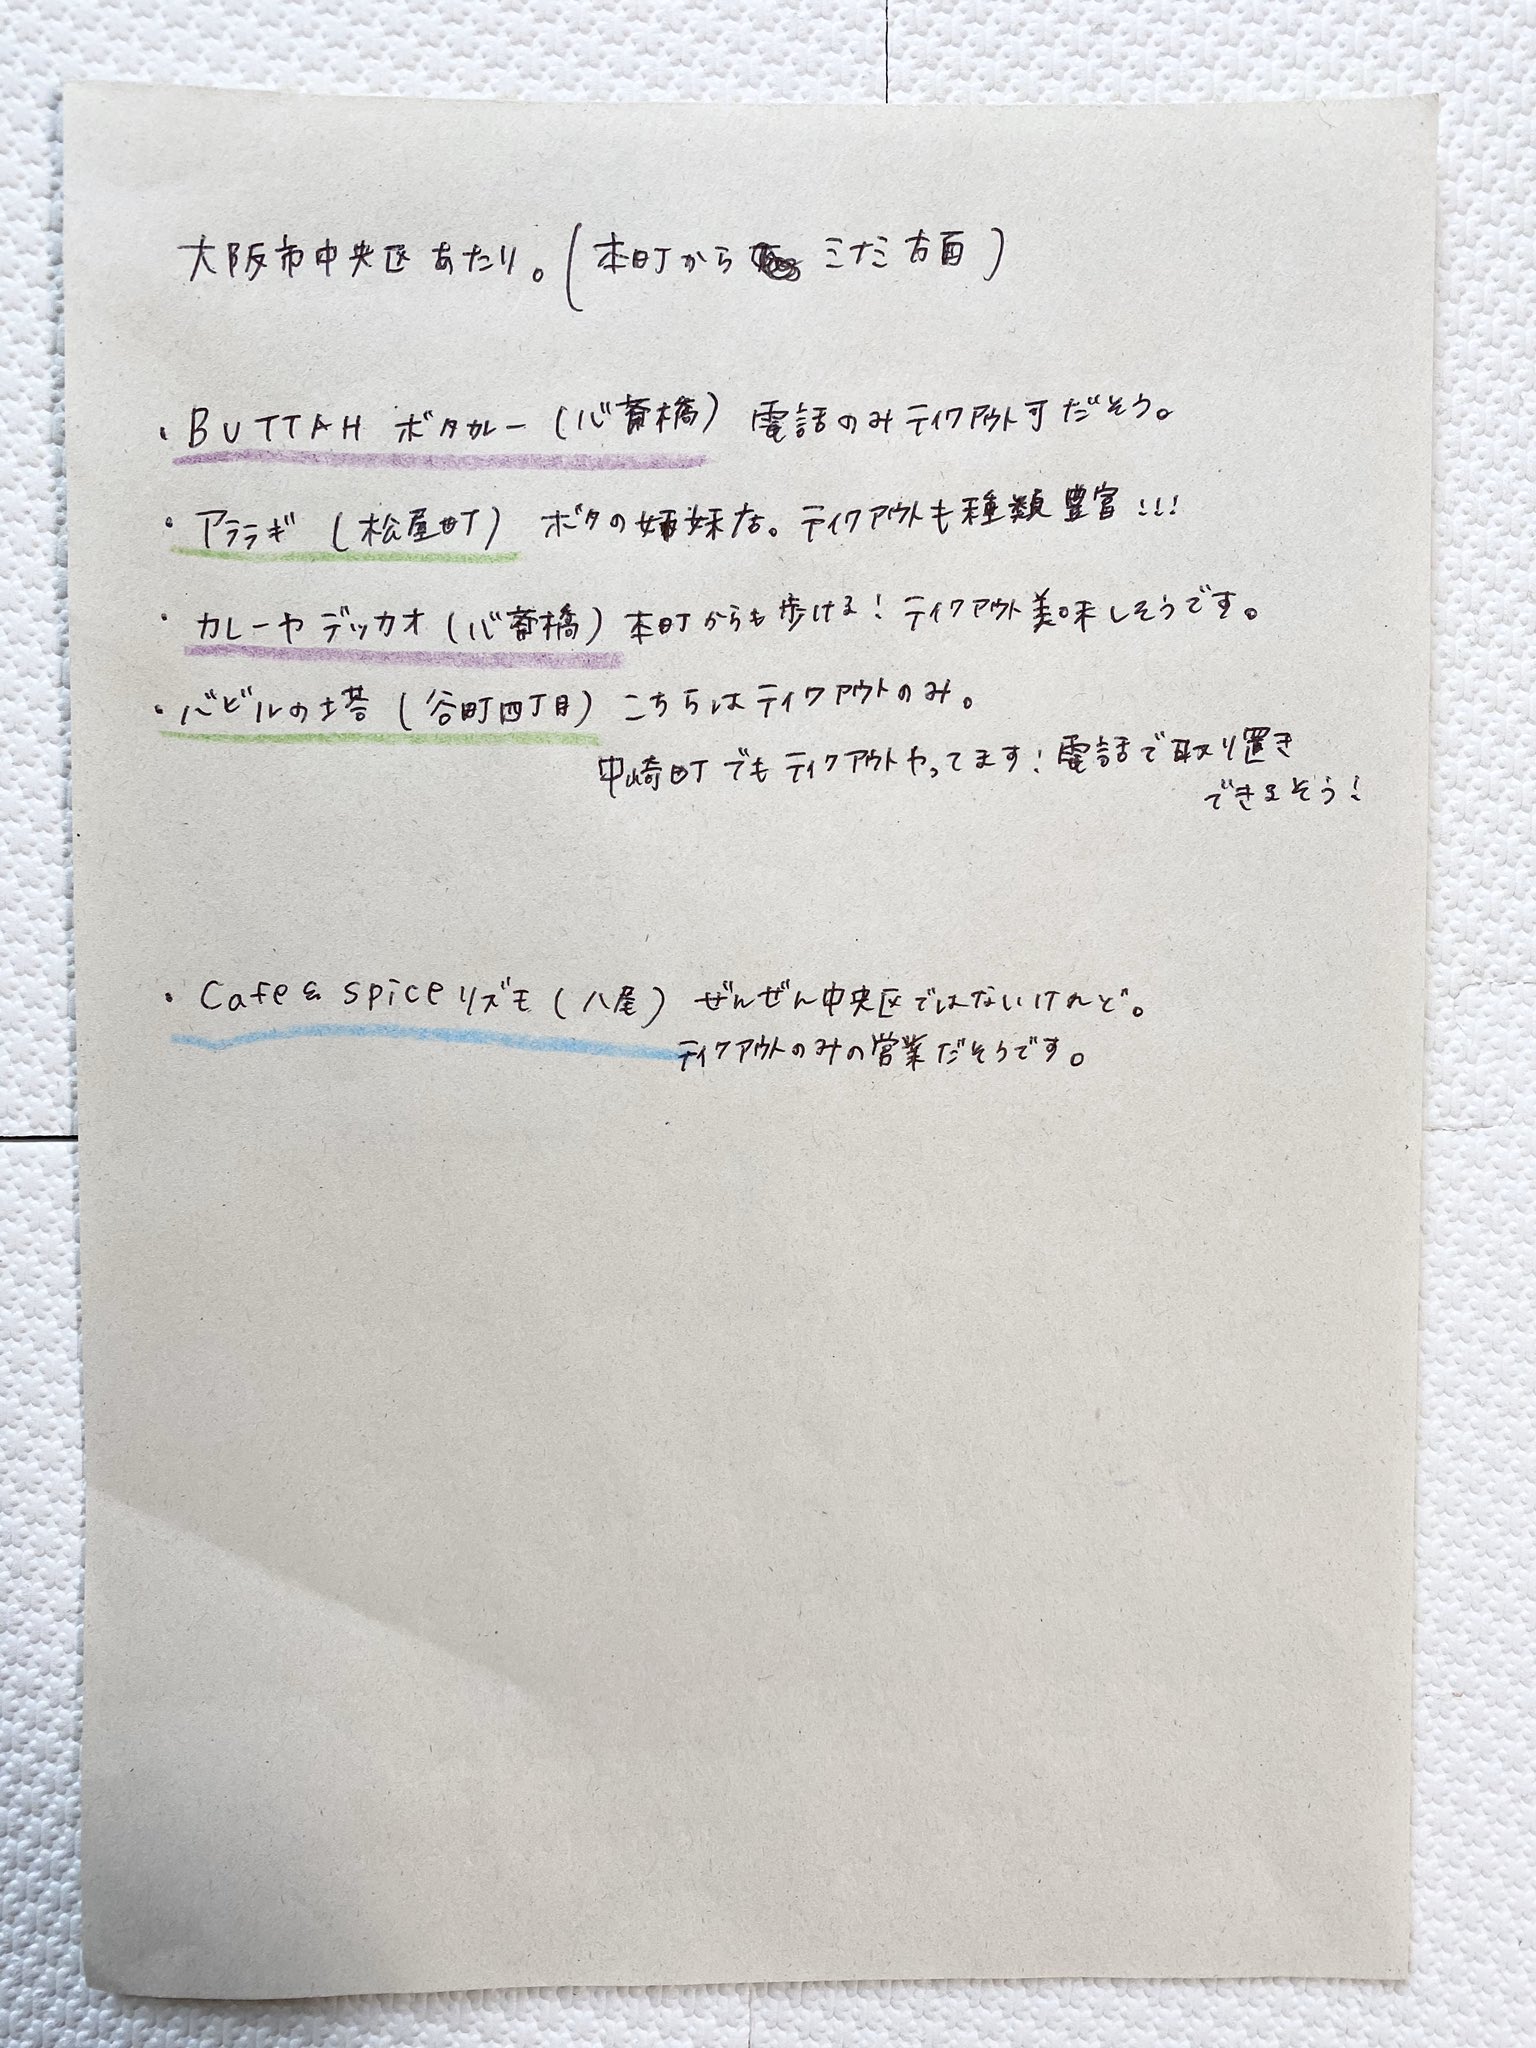 大阪市中央区あたり。(本町から ミナミ方面)
・BUTTAH ボタカレー(心斎橋) 電話のみテイクアウト可だそう。
・アララギ (松屋町) ボタの姉妹店。テイクアウトも種類豊富!!!
・カレーヤ デッカオ(心斎橋) 本町からも歩ける! テイクアウト美味しそうです。
・バビルの塔 (谷町四丁目) こちらはテイクアウトのみ。
中崎町でもテイクアウトやってます! 電話で取り置き
できるそう!
・Cafe & spice リズモ (八尾) ぜんぜん中央区ではないけれど。
テイクアウトのみの営業だそうです。